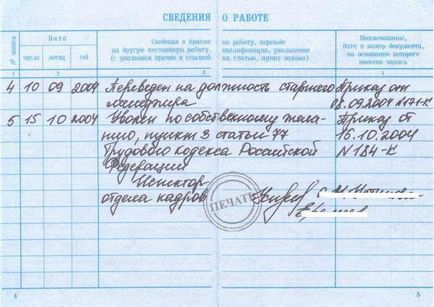 СВЕДЕНИЯ О РАБОТЕ
№ записи
Дата
число
месяц
год
Сведения о приеме на работу, переводе
на другую постоянную работу, квалификации, увольнении
(с указанием причин и ссылкой на статью, пункт закона)
Наименование,
дата и номер документа,
на основании которого
внесена запись
1 2 3 4
4 10 09 2004 Переведен на должность старшего Приказ от
менеджера 08.09.2004 N171-к
5 15 10 2004 Уволен по собственному жела- Приказ от
нию, пункт 3 статьи 77 15.10.2004
Трудового кодекса Российской N 184-к
Федерации
Инспектор
отдела кадров
ПЕЧАТЬ
4 5